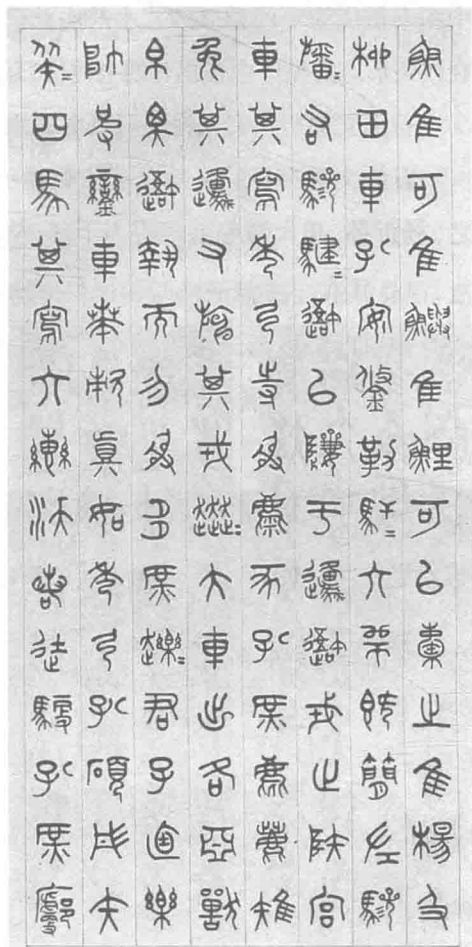 魚隹可隹鱮隹鯉可㠯橐之隹楊及
柳田車孔安鋚勒馵=六師既簡左驂
旛=右驂騝=䢦㠯隮于邍䢦戎止陸宮
車其寫秀弓寺射麋豕孔庶麀鹿雉
兔其邍又旃其戎奔=大車出各亞獸
白澤䢦執而勿射多庶趯=君子逌樂
帥彼鑾車𠦪敕真如秀弓孔碩彤矢
矢=四馬其寫六轡沃若徒馭孔庶廓